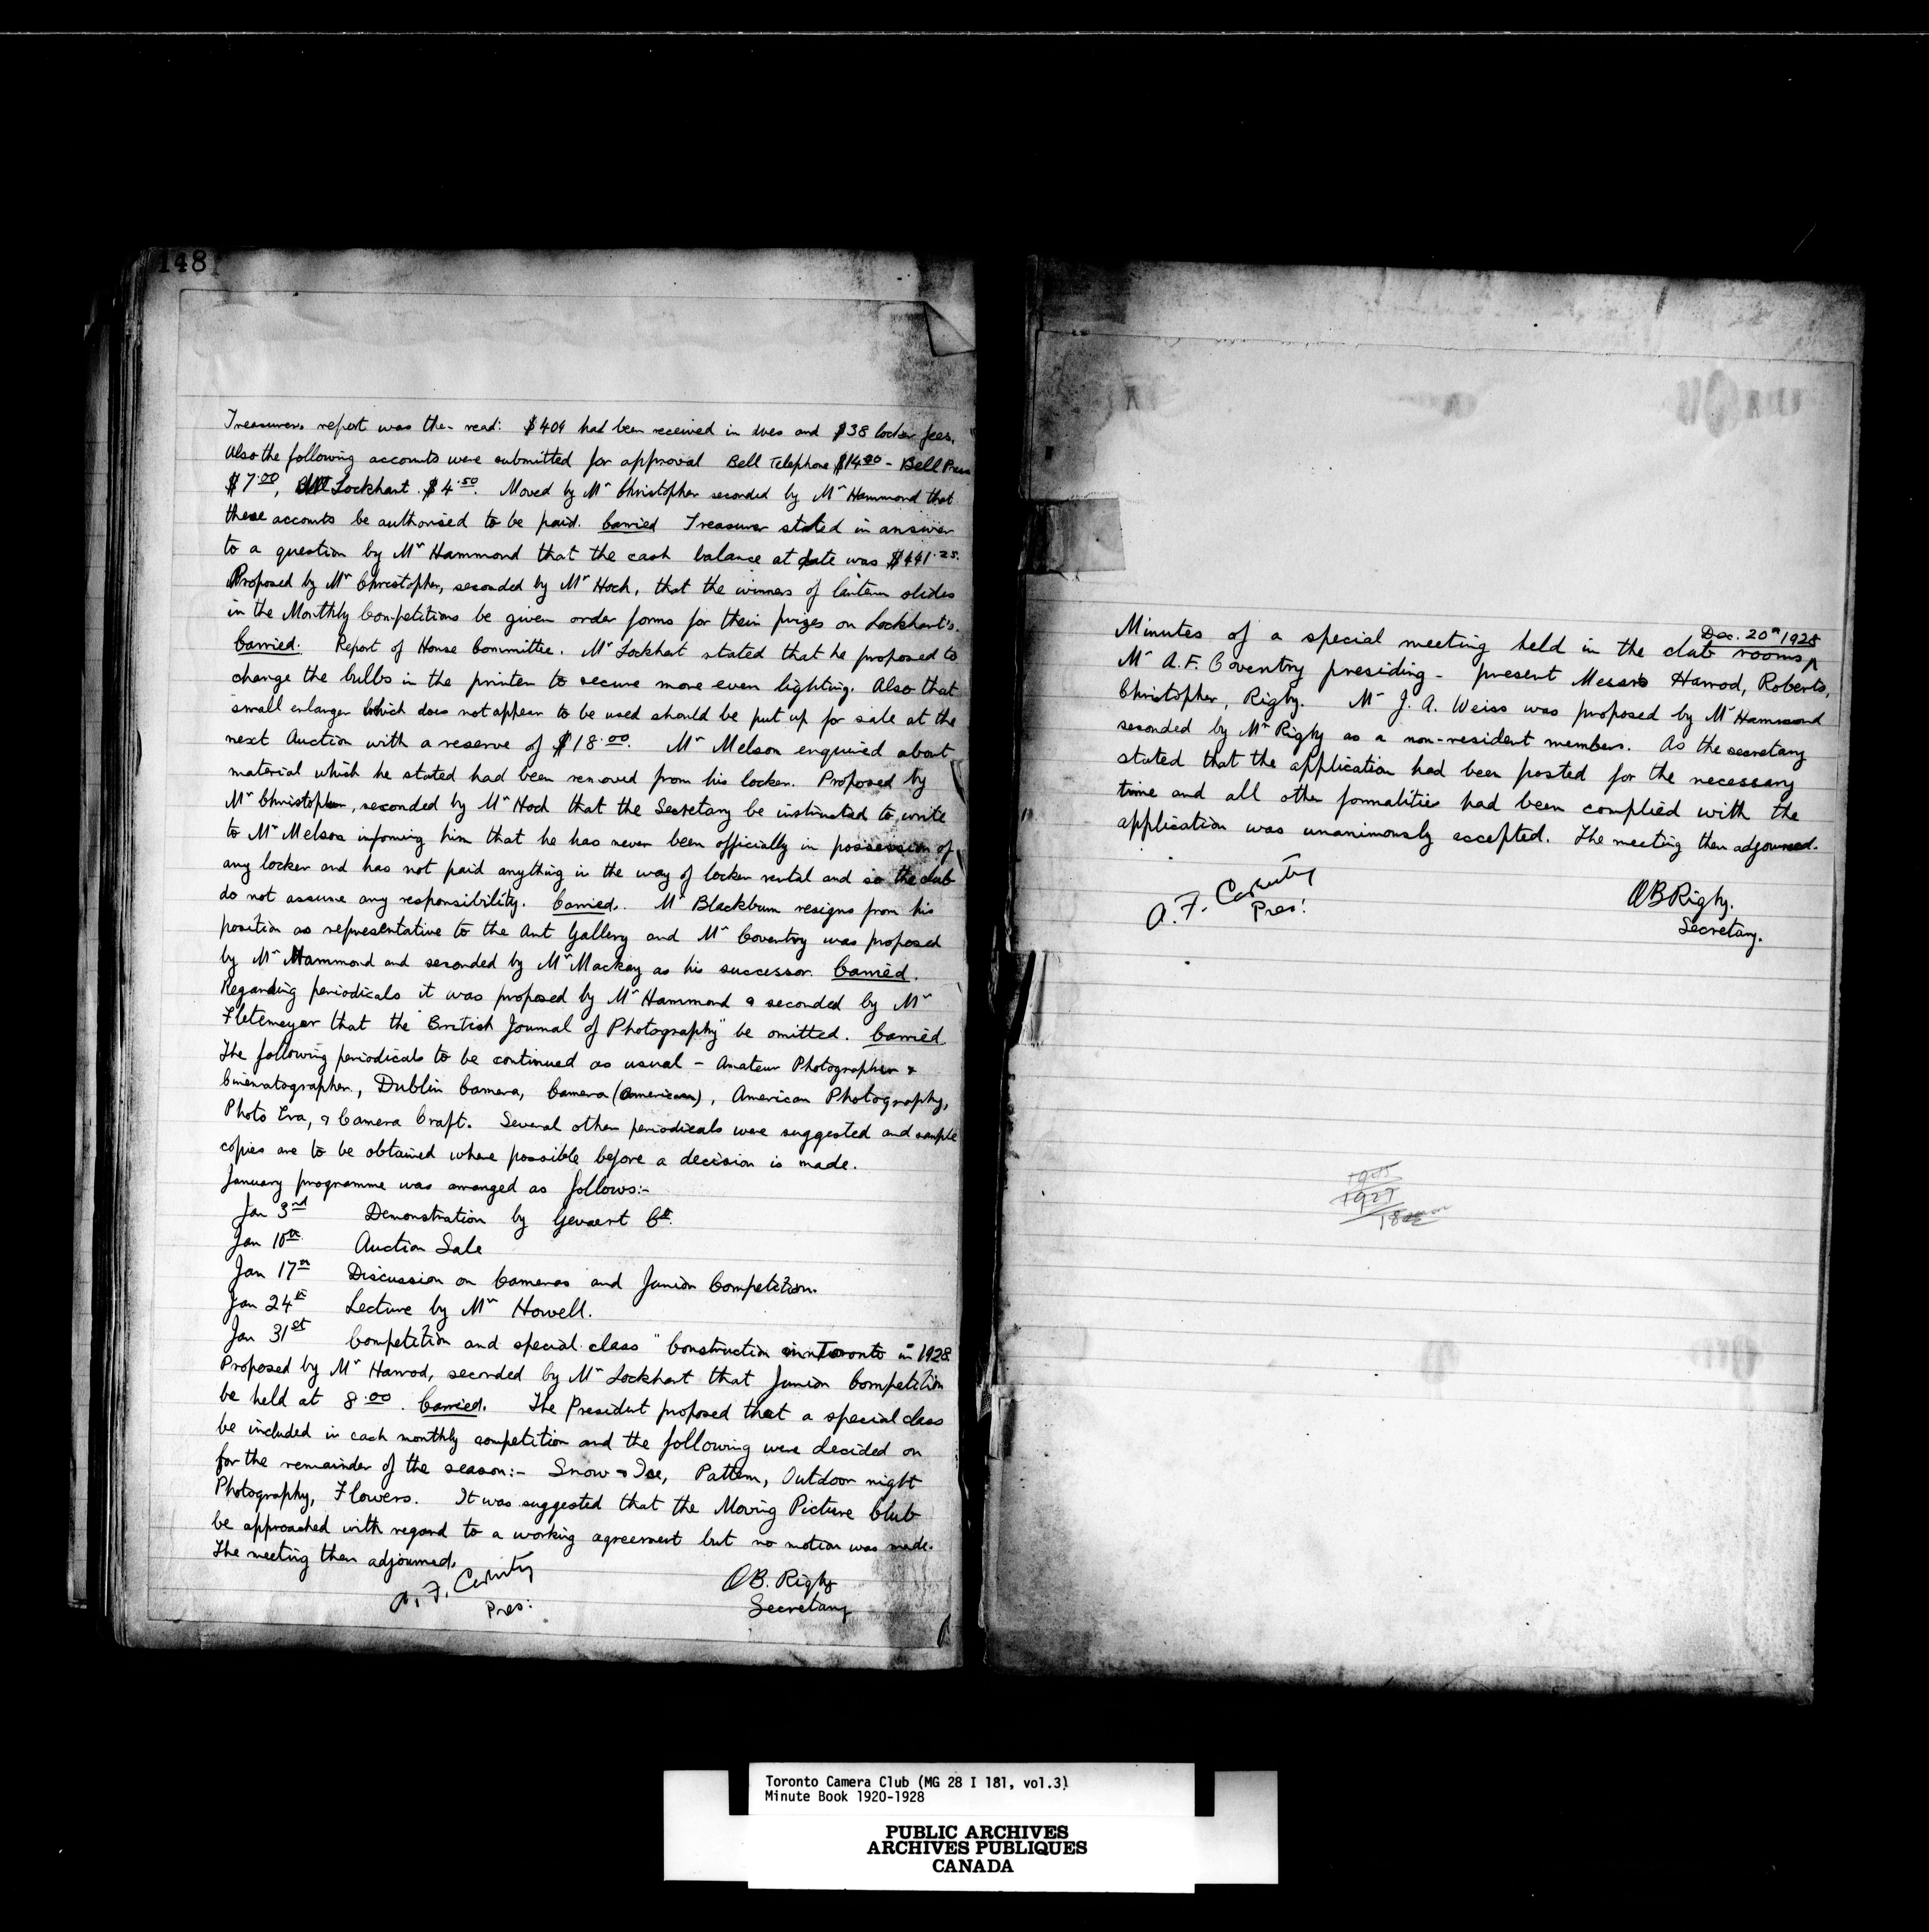 148
Treasurers report was then read: $409 had been received in dues and $38 locker fees.
Also the following accounts were submitted for approval Bell Telephone $14.00 - Bell Press
$7.00, Lockhart $4.50. Moved by Mr Christopher seconded by Mr Hammond that
these accounts be authorised to be paid. Carried Treasurer stated in answer
to a question by Mr Hammond that the cash balance at date was $441.25.
Proposed by Mr Christopher, seconded by Mr Hoch, that the winners of lantern slides
in the Monthly Competitions be given order forms for their prizes on Lockhart's.
Carried. Report of House Committee. Mr Lockhart stated that he proposed to
change the bulbs in the printer to secure more even lighting. Also that
small enlarger which does not appear to be used should be put up for sale at the
next Auction with a reserve of $18.00. Mr Melson enquired about
material which he stated had been removed from his locker. Proposed by
Mr Christopher, seconded by Mr Hoch that the Secretary be instructed to write
to Mr Melson infoming him that he has never been officially in possession of
any locker and has not paid anything in the way of locker rental and so the club
do not assume any responsibility. Carried. Mr Blackburn resigns from his
position as representative to the Art Gallery and Mr Coventry was proposed
by Mr Hammond and seconded by Mr Mackay as his successor. Carried.
Regarding periodicals it was proposed by Mr Hammond & seconded by Mr
Fletemeyer that the "British Journal of Photography" be omitted. Carried
The following periodicals to be continued as usual - Amateur Photographer &
Cinematographer, Dublin Camera, Camera (American), American Photography,
Photo Era, & Camera Craft. Several other periodicals were suggested and sample
copies are to be obtained where possible before a decision is made.
January programme was arranged as follows:-
Jan 3rd Demonstration by Gevaert Co.
Jan 10th Auction Sale
Jan 17th Discussion on Cameras and Junior Competition.
Jan 24th Lecture by Mr Howell.
Jan 31st Competition and special class "Construction in Toronto in 1928
Proposed by Mr Harrod, seconded by Mr Lockhart that Junior Competition
be held at 8.00. Carried. The President proposed that a special class
be included in each monthly competition and the following were decided on
for the remainder of the season:- Snow & Ice, Pattern, Outdoor night
Photography, Flowers. It was suggested that the Moving Picture Club
be approached with regard to a working agreement but no motion was made.
The meeting then adjourned.
A. F. Coventry
Pres:
OB. Rigby
Secretary
Dec. 20th 1928
Minutes of a special meeting held in the club rooms
Mr A.F. Coventry presiding - present Messrs Harrod, Roberts,
Christopher, Rigby. Mr J. A. Weiss was proposed by Mr Hammond
seconded by Mr Rigby as a non-resident members. As the secretary
stated that the application had been posted for the necessary
time and all other formalities had been complied with the
application was unanimously accepted. The meeting then adjourned.
A. F. Coventry
Pres!
OB Rigby.
Secretary.
Toronto Camera Club (MG 28 I 181, vol.3)
Minute Book 1920-1928
PUBLIC ARCHIVES
ARCHIVES PUBLIQUES
CANADA